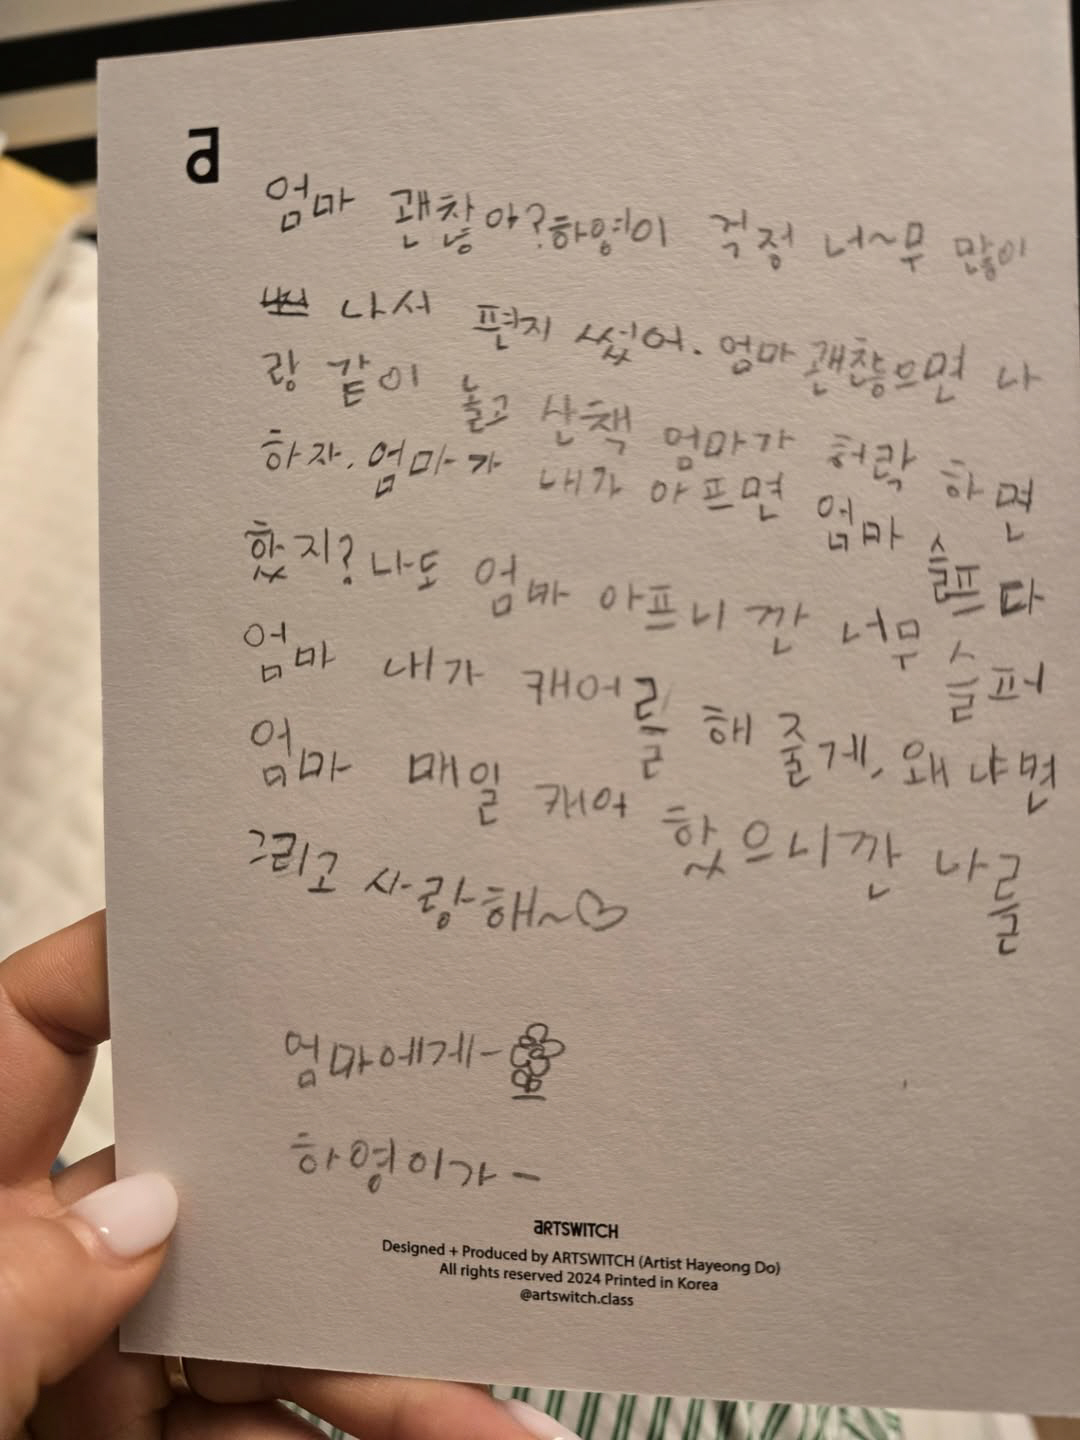 a
엄마 괜찮아? 하영이 걱정 너~무 많이
나서 편지 썼어. 엄마 괜찮으면 나
랑 같이 놀고 산책 엄마가 허락 하면
하자. 엄마가 내가 아프면 엄마 슬프다
했지? 나도 엄마 아프니깐 너무 슬퍼
엄마 내가 캐어를 해 줄게, 왜 냐면
엄마 매일 캐어 했으니깐 나를
그리고 사랑해~♡
엄마에게-
하영이가-
aRTSWITCH
Designed + Produced by ARTSWITCH (Artist Hayeong Do)
All rights reserved 2024 Printed in Korea
@artswitch.class